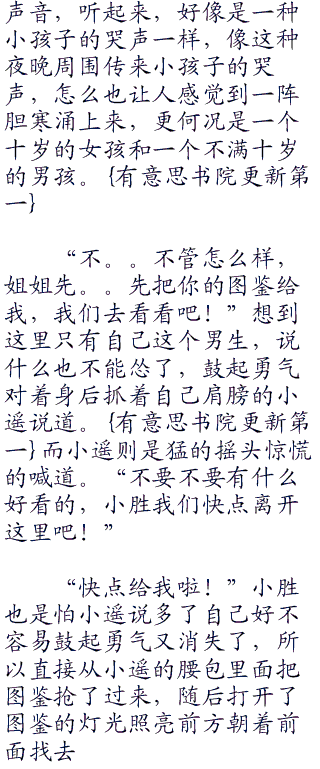 声音，听起来，好像是一种
小孩子的哭声一样，像这种
夜晚周围传来小孩子的哭
声，怎么也让人感觉到一阵
胆寒涌上来，更何况是一个
十岁的女孩和一个不满十岁
的男孩。{有意思书院更新第
一}
“不。。不管怎么样，
姐姐先。。先把你的图鉴给
我，我们去看看吧！”想到
这里只有自己这个男生，说
什么也不能怂了，鼓起勇气
对着身后抓着自己肩膀的小
遥说道。{有意思书院更新第
一}而小遥则是猛的摇头惊慌
的喊道。“不要不要有什么
好看的，小胜我们快点离开
这里吧！”
“快点给我啦！”小胜
也是怕小遥说多了自己好不
容易鼓起勇气又消失了，所
以直接从小遥的腰包里面把
图鉴抢了过来，随后打开了
图鉴的灯光照亮前方朝着前
面找去